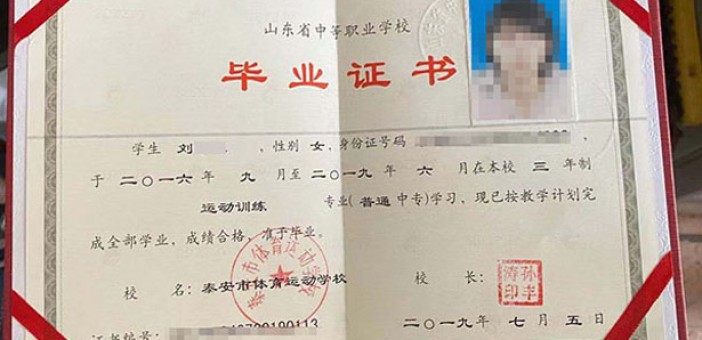 山东省中等职业学校
毕业证书
学生 刘 , 性别 女, 身份证号码
于 二〇一六 年 九 月至 二〇一九 年 六 月在本校 三 年制
运动训练 专业( 普通 中专)学习, 现已按教学计划完
成全部学业, 成绩合格, 准予毕业。
泰安市体育运动学校
校 名: 泰安市体育运动学校 校 长:
孙丰涛印
证书编号: 190113
二〇一九 年 七 月 五 日